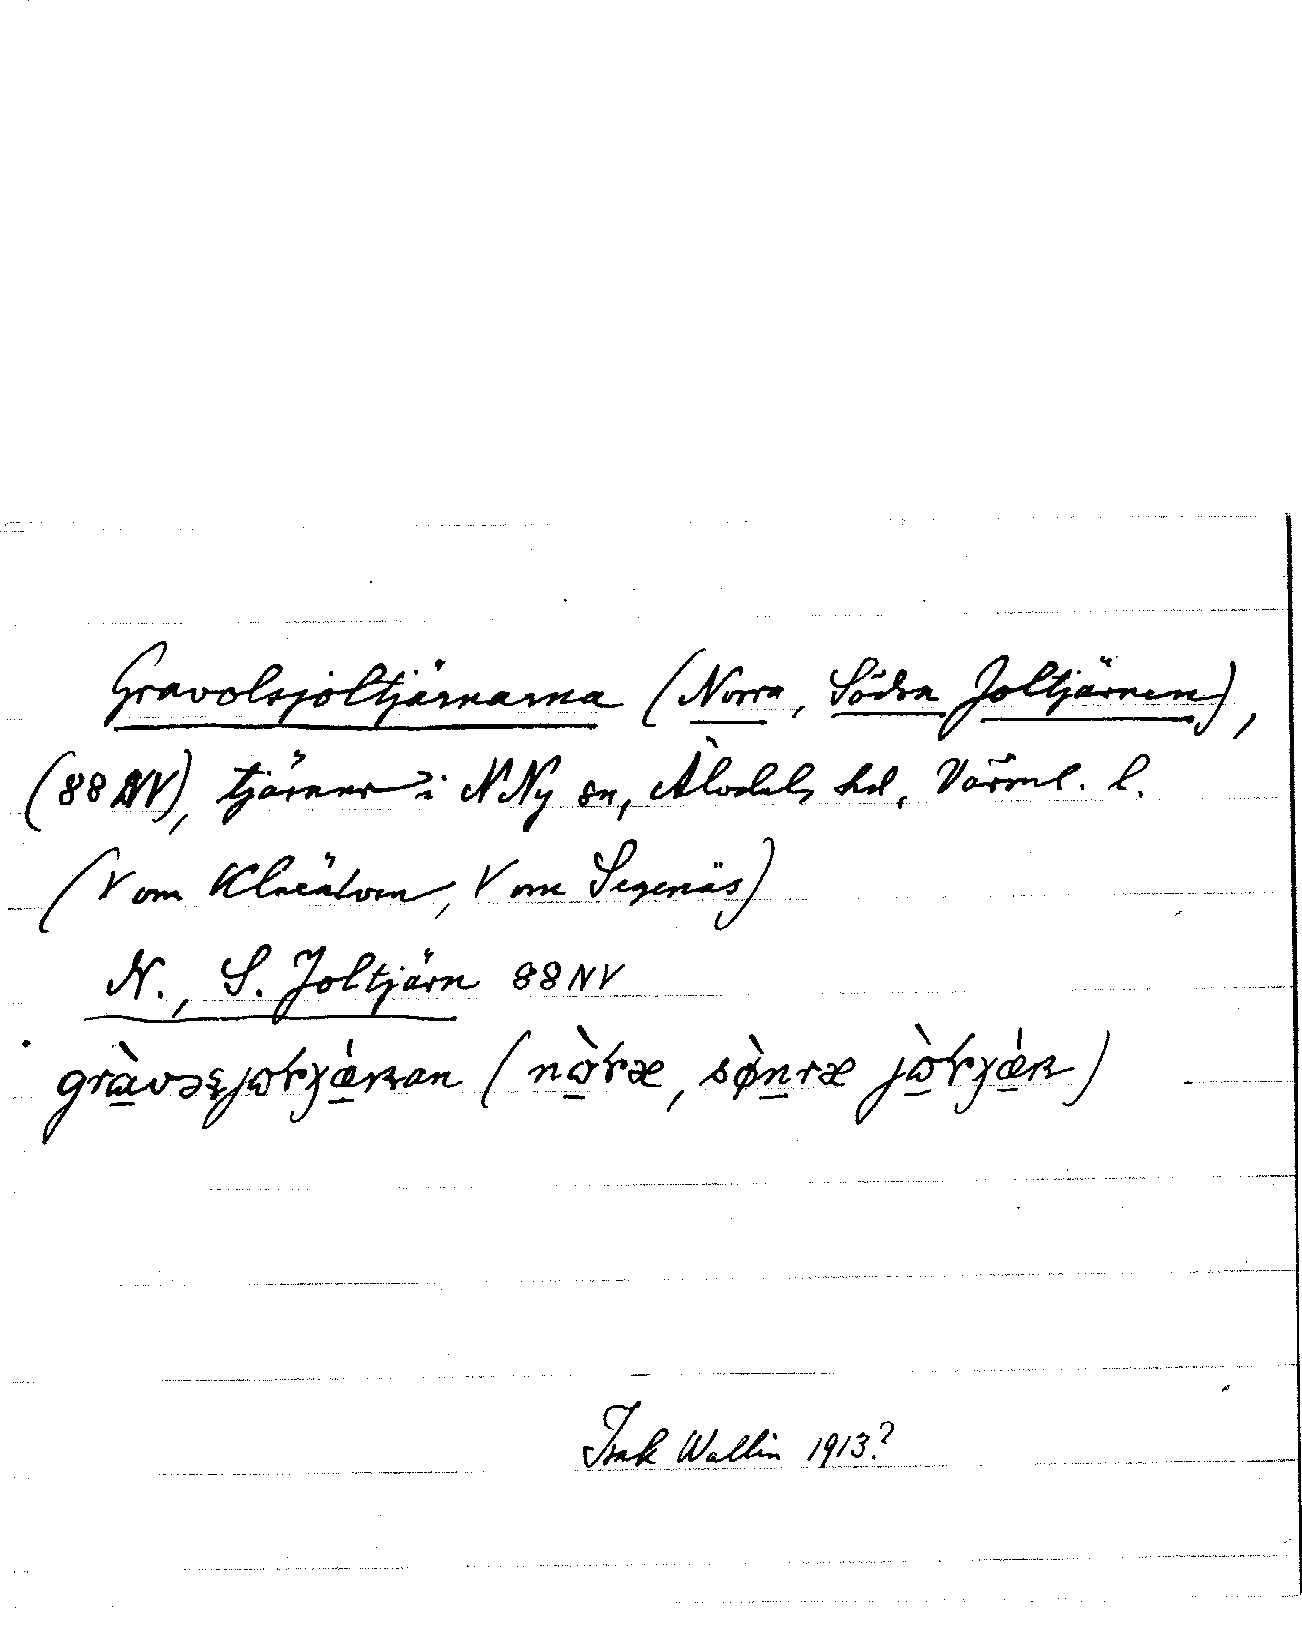 Gravolsjoltjärnarna (Norra, Södra Joltjärnen),
(88 NV), tjärnar i N Ny sn, Älvdals hd, Värml. l.
(V om Klarälven, V om Segenäs)
N., S. Joltjärn 88 NV
(
Isak Wallin 1913?